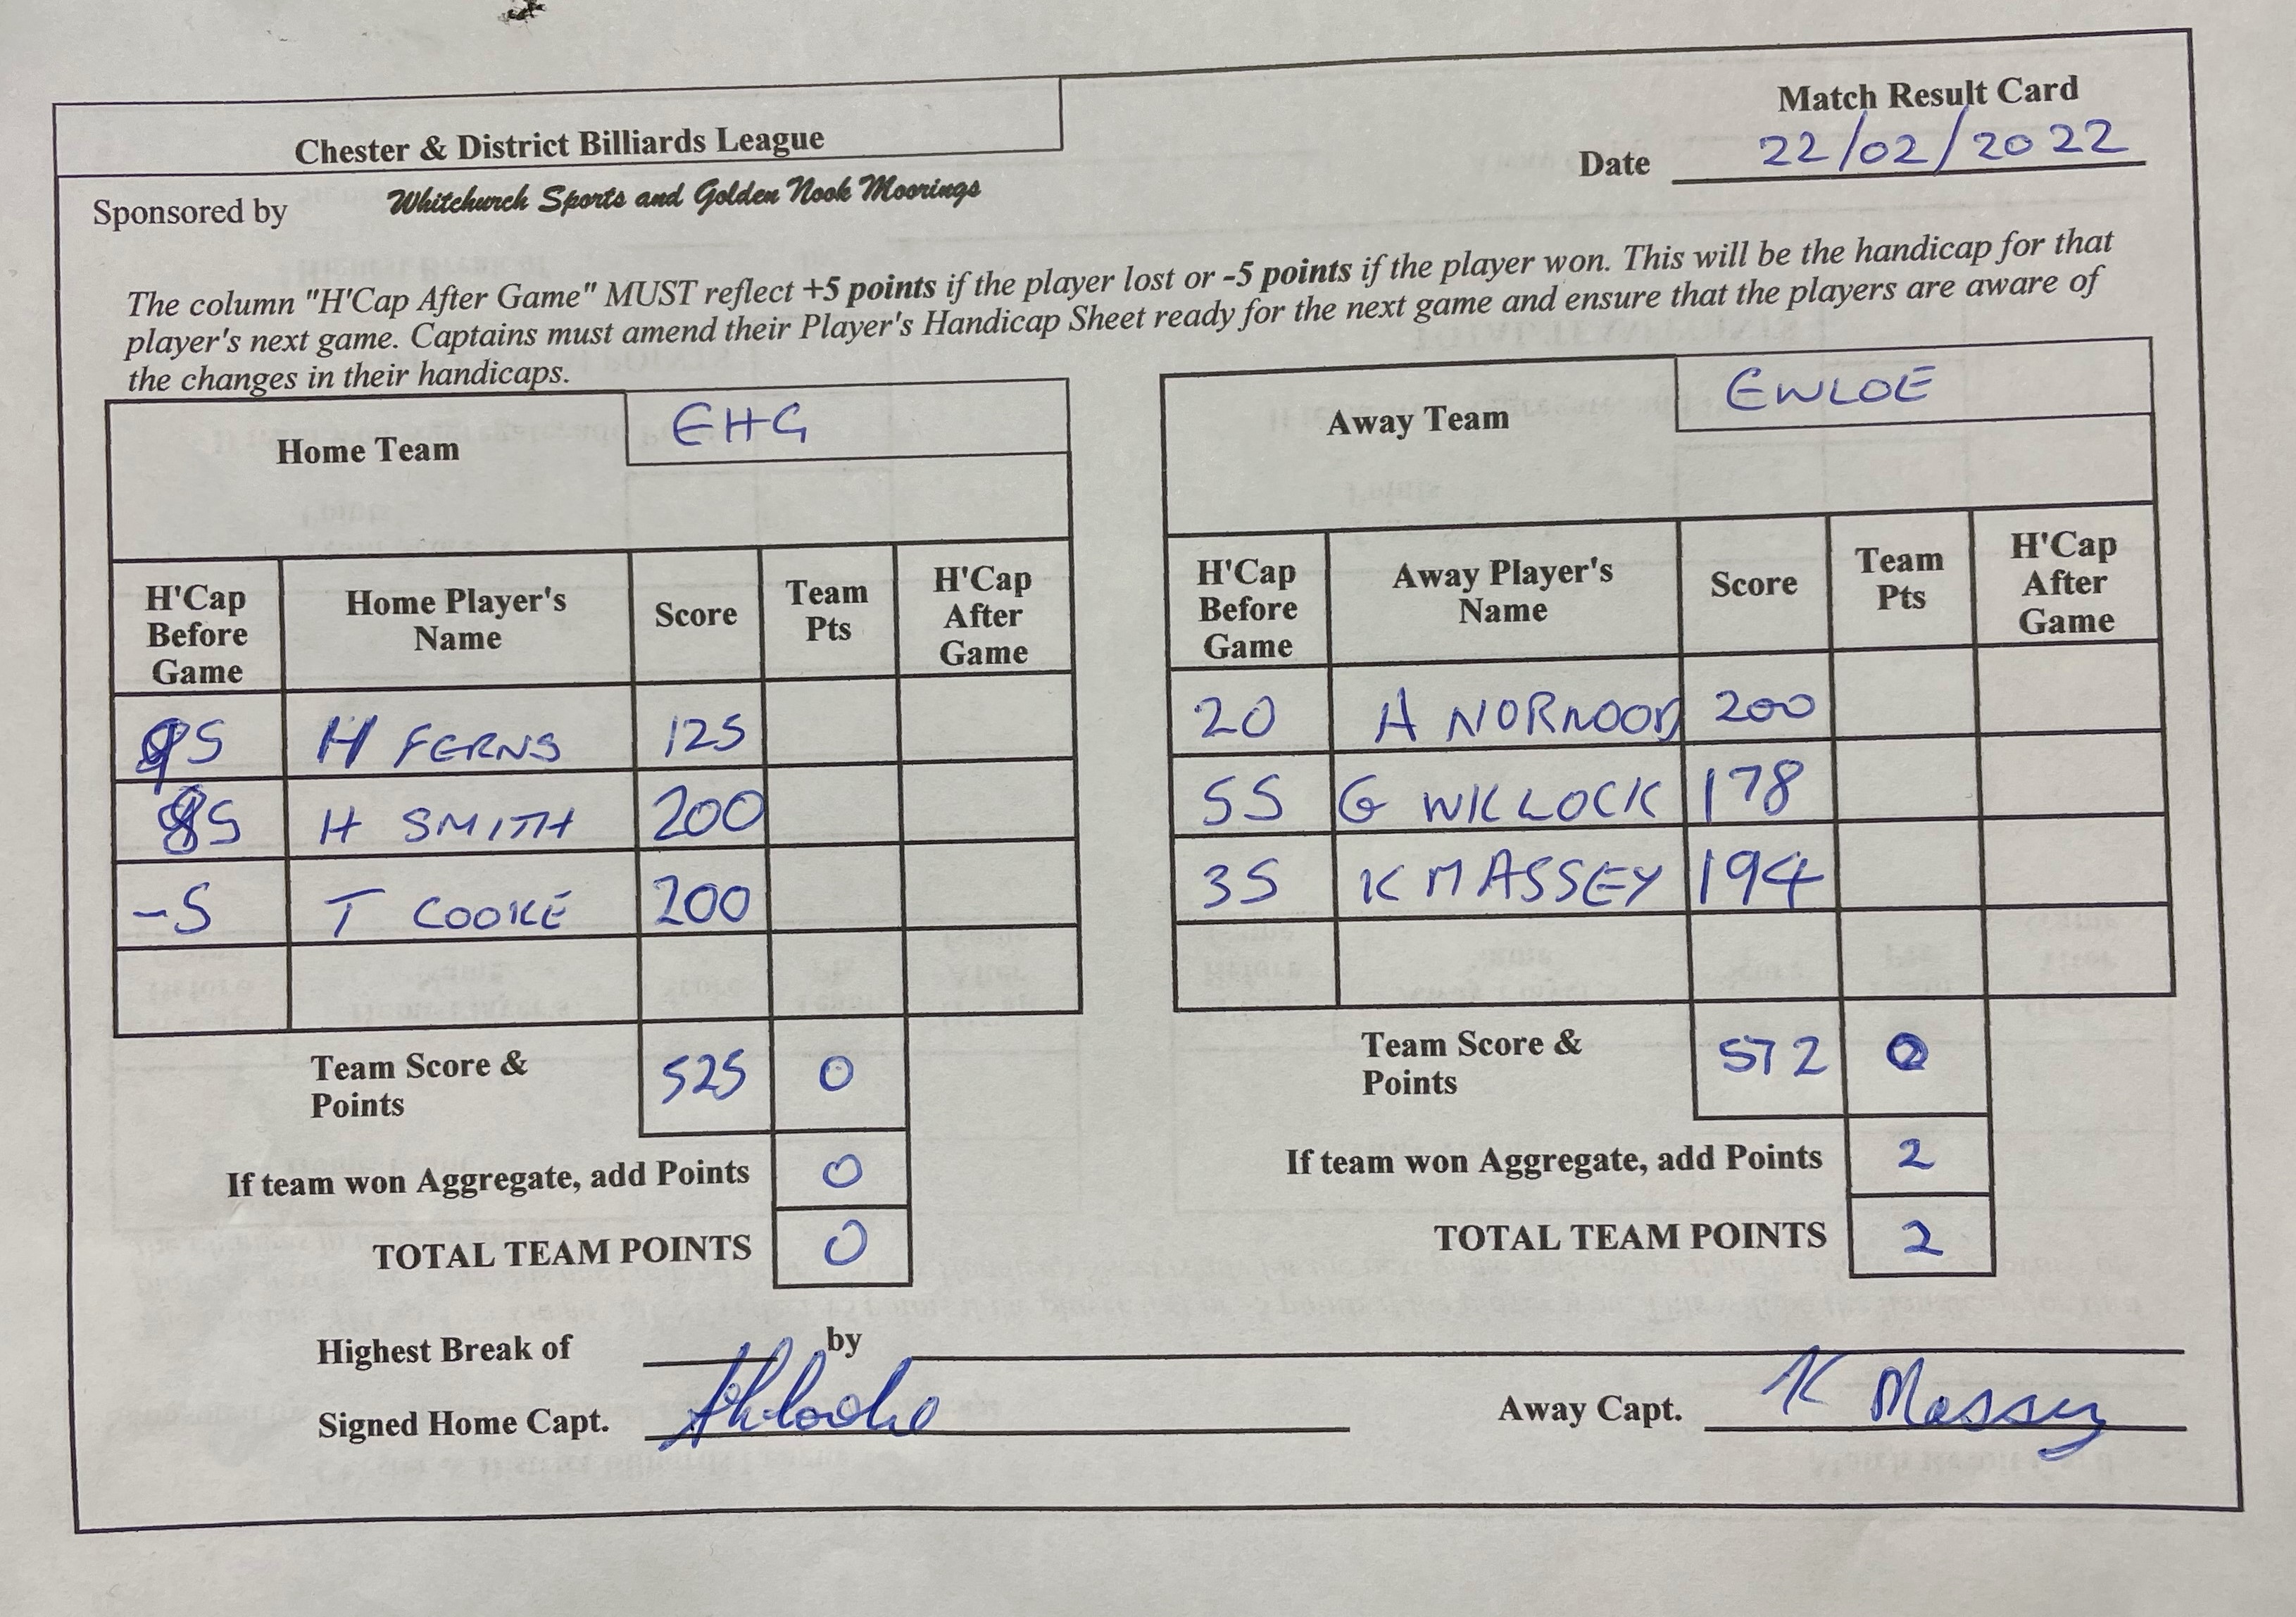 Match Result Card
Chester & District Billiards League
Date 22/02/2022
Sponsored by Whitchurch Sports and Golden Nook Moorings
The column "H'Cap After Game" MUST reflect +5 points if the player lost or -5 points if the player won. This will be the handicap for that
player's next game. Captains must amend their Player's Handicap Sheet ready for the next game and ensure that the players are aware of
the changes in their handicaps.
Home Team EHG
H'Cap Before Game Home Player's Name Score Team Pts H'Cap After Game
95 H FERNS 125
85 H SMITH 200
-5 T COOKE 200
Team Score & Points 525 0
If team won Aggregate, add Points 0
TOTAL TEAM POINTS 0
Away Team EWLOE
H'Cap Before Game Away Player's Name Score Team Pts H'Cap After Game
20 A NORWOOD 200
55 G WILLOCK 178
35 K MASSEY 194
Team Score & Points 572 0
If team won Aggregate, add Points 2
TOTAL TEAM POINTS 2
Highest Break of by
Signed Home Capt.
Away Capt. K Massey